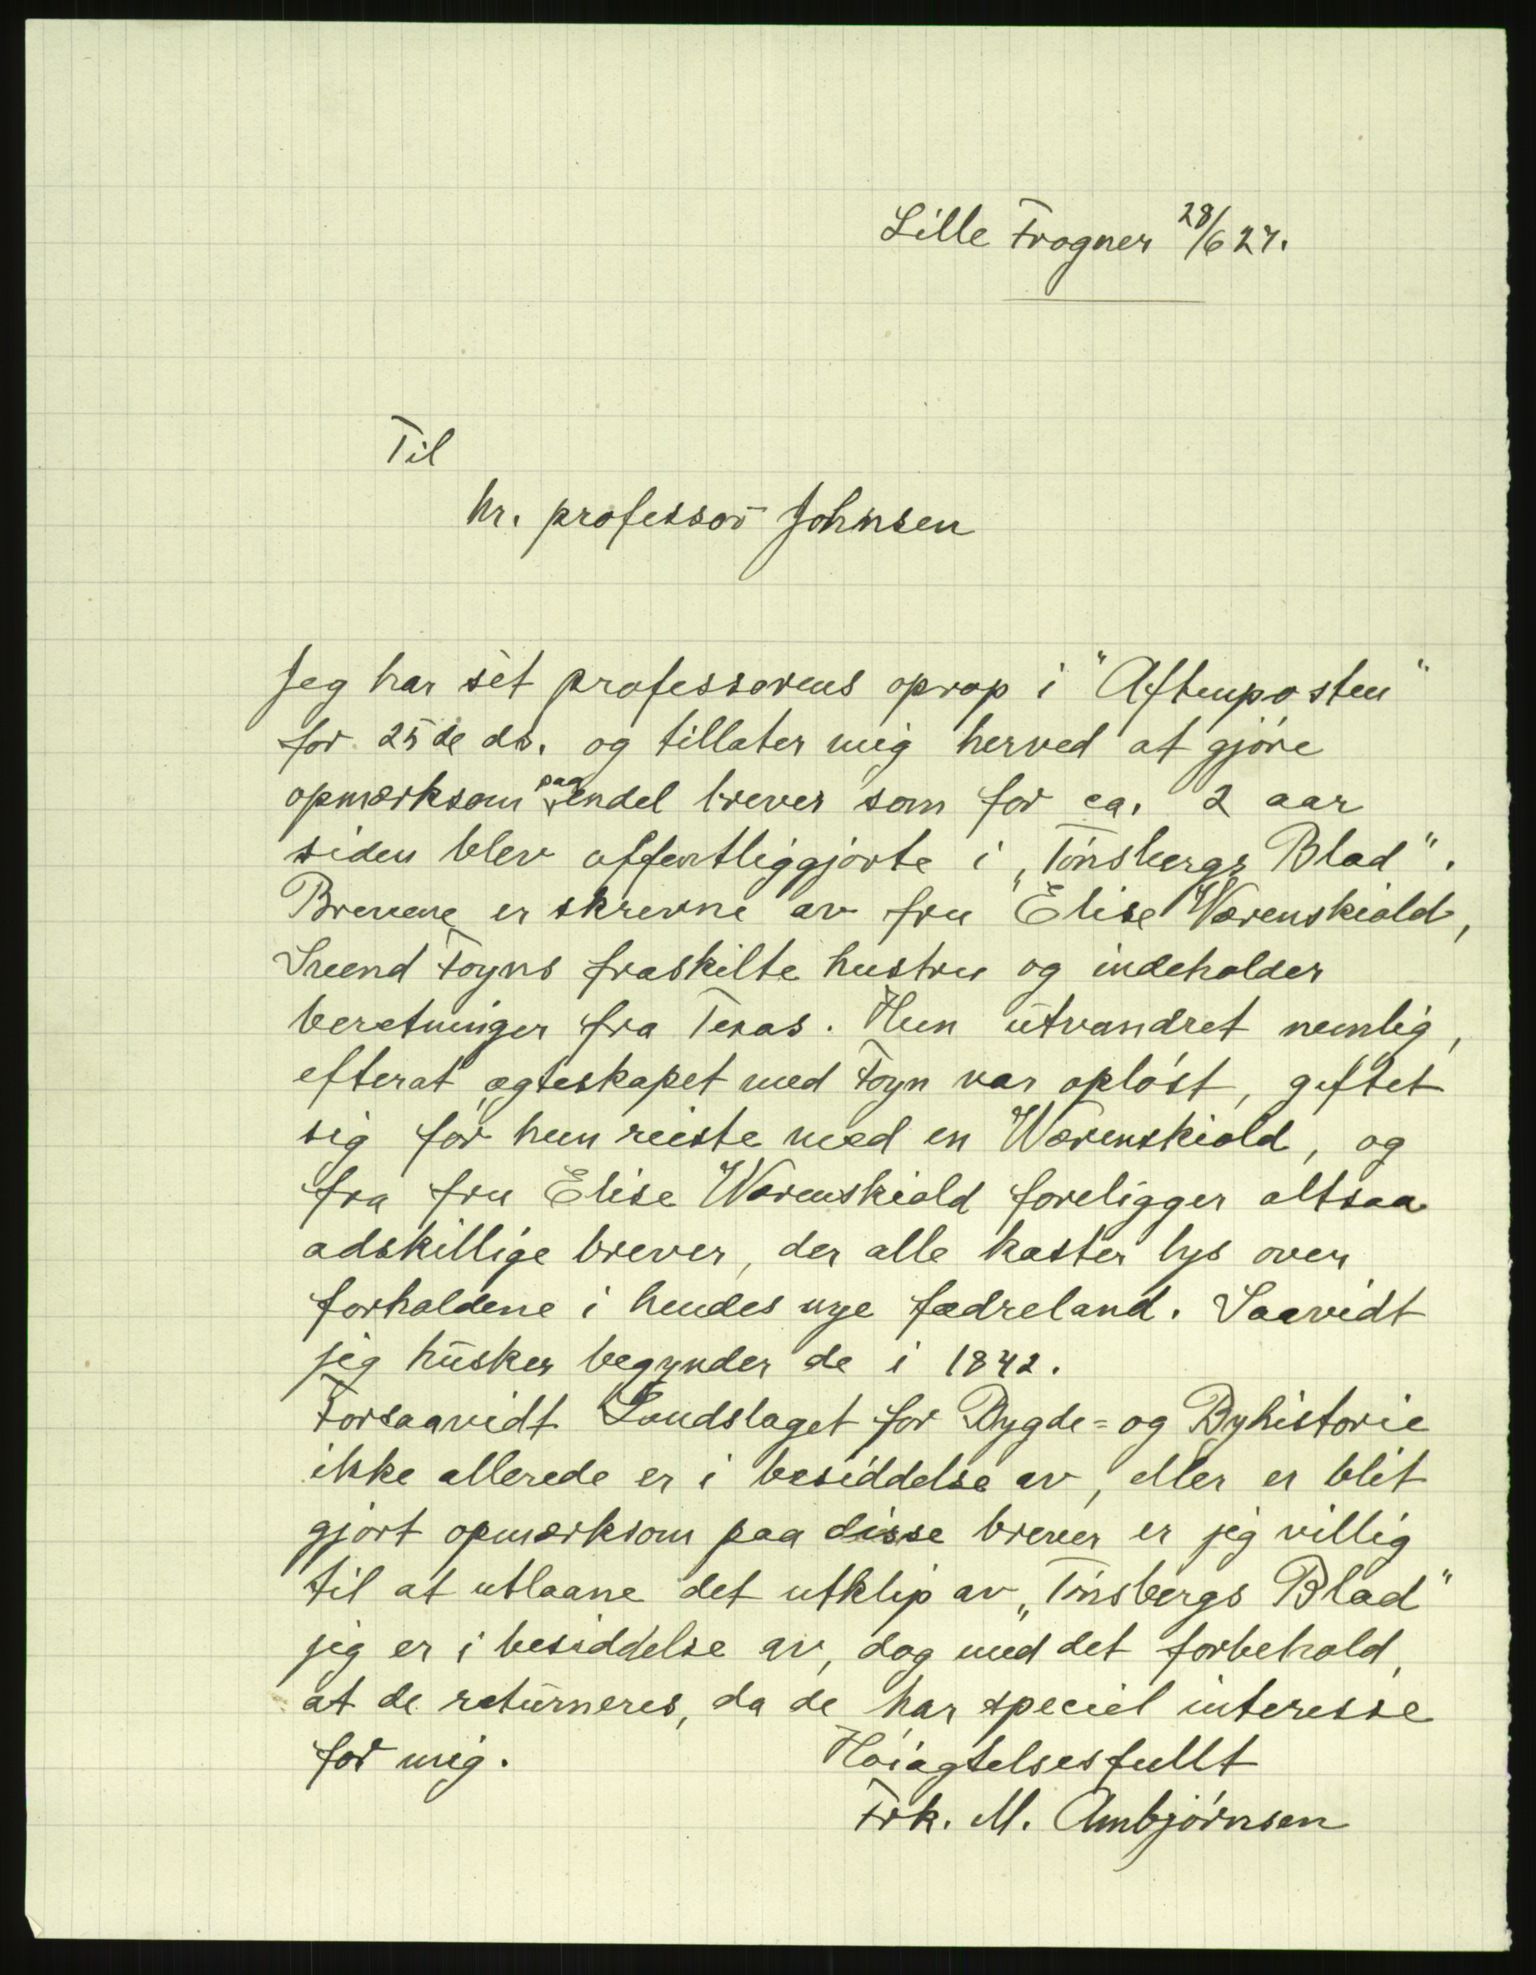 Lille Frogner 28/6 27.
Til
hr. professor Johnsen
Jeg har sét professorens oprop i "Aftenposten"
for 25de ds. og tillater mig herved at gjøre
opmærksom paa endel brever som for ca. 2 aar
siden blev offentliggjorte i „Tønsbergs Blad".
Brevene er skrevne av fru Elise Wærenskiold,
Svend Foyns fraskilte hustru og indeholder
beretninger fra Texas. Hun utvandret nemlig,
efterat ægteskapet med Foyn var opløst, giftet
sig før hun reiste med en Wærenskiold, og
fra fru Elise Wærenskiold foreligger altsaa
adskillige brever, der alle kaster lys over
forholdene i hendes nye fædreland. Saavidt
jeg husker begynder de i 1842.
Forsaavidt Landslaget for Bygde= og Byhistorie
ikke allerede er i besiddelse av, eller er blit
gjort opmærksom paa disse brever er jeg villig
til at utlaane det utklip av „Tønsbergs Blad"
jeg er i besiddelse av, dog med det forbehold,
at de returneres, da de har speciel interesse
for mig.
Høiagtelsesfullt
Frk. M. Ambjørnsen